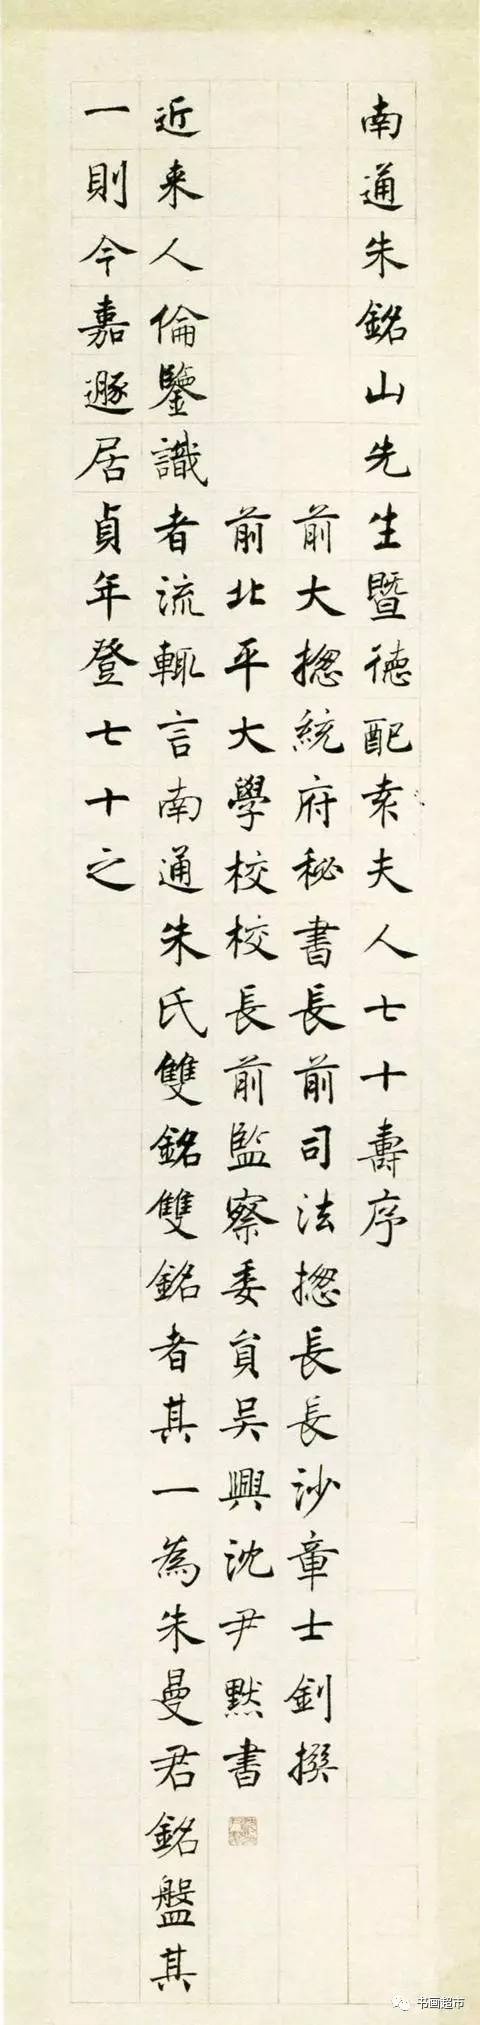 南通朱銘山先生暨德配袁夫人七十壽序
前大揔統府秘書長前司法揔長長沙章士釗撰
前北平大學校校長前監察委員吴興沈尹默書
近来人倫鑒識者流輒言南通朱氏雙銘雙銘者其一為朱曼君銘盤其
一則今嘉遯居貞年登七十之
书画超市